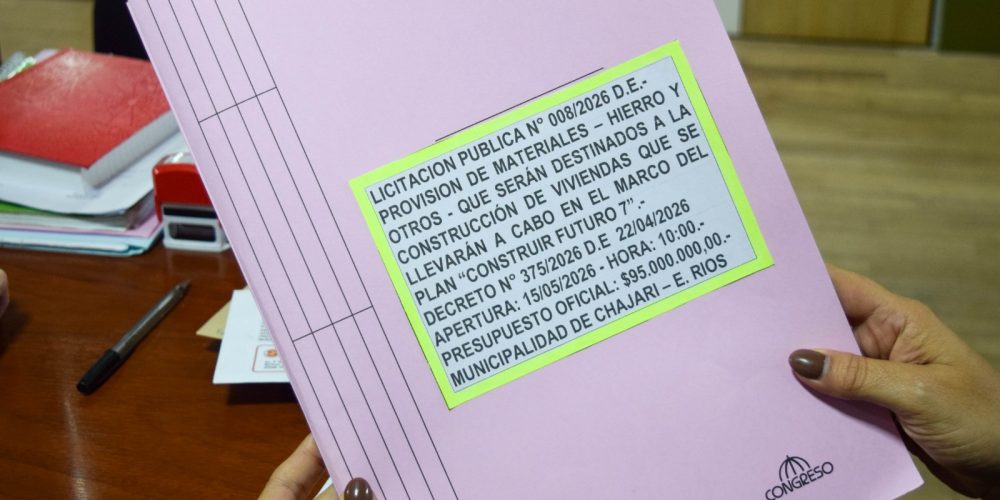 LICITACION PUBLICA N° 008/2026 D.E.-
PROVISION DE MATERIALES – HIERRO Y
OTROS - QUE SERÁN DESTINADOS A LA
CONSTRUCCIÓN DE VIVIENDAS QUE SE
LLEVARÁN A CABO EN EL MARCO DEL
PLAN “CONSTRUIR FUTURO 7” .-
DECRETO N° 375/2026 D.E 22/04/2026
APERTURA: 15/05/2026 - HORA: 10:00.-
PRESUPUESTO OFICIAL: $95.000.000.00.-
MUNICIPALIDAD DE CHAJARI – E. RIOS
CONGRESO